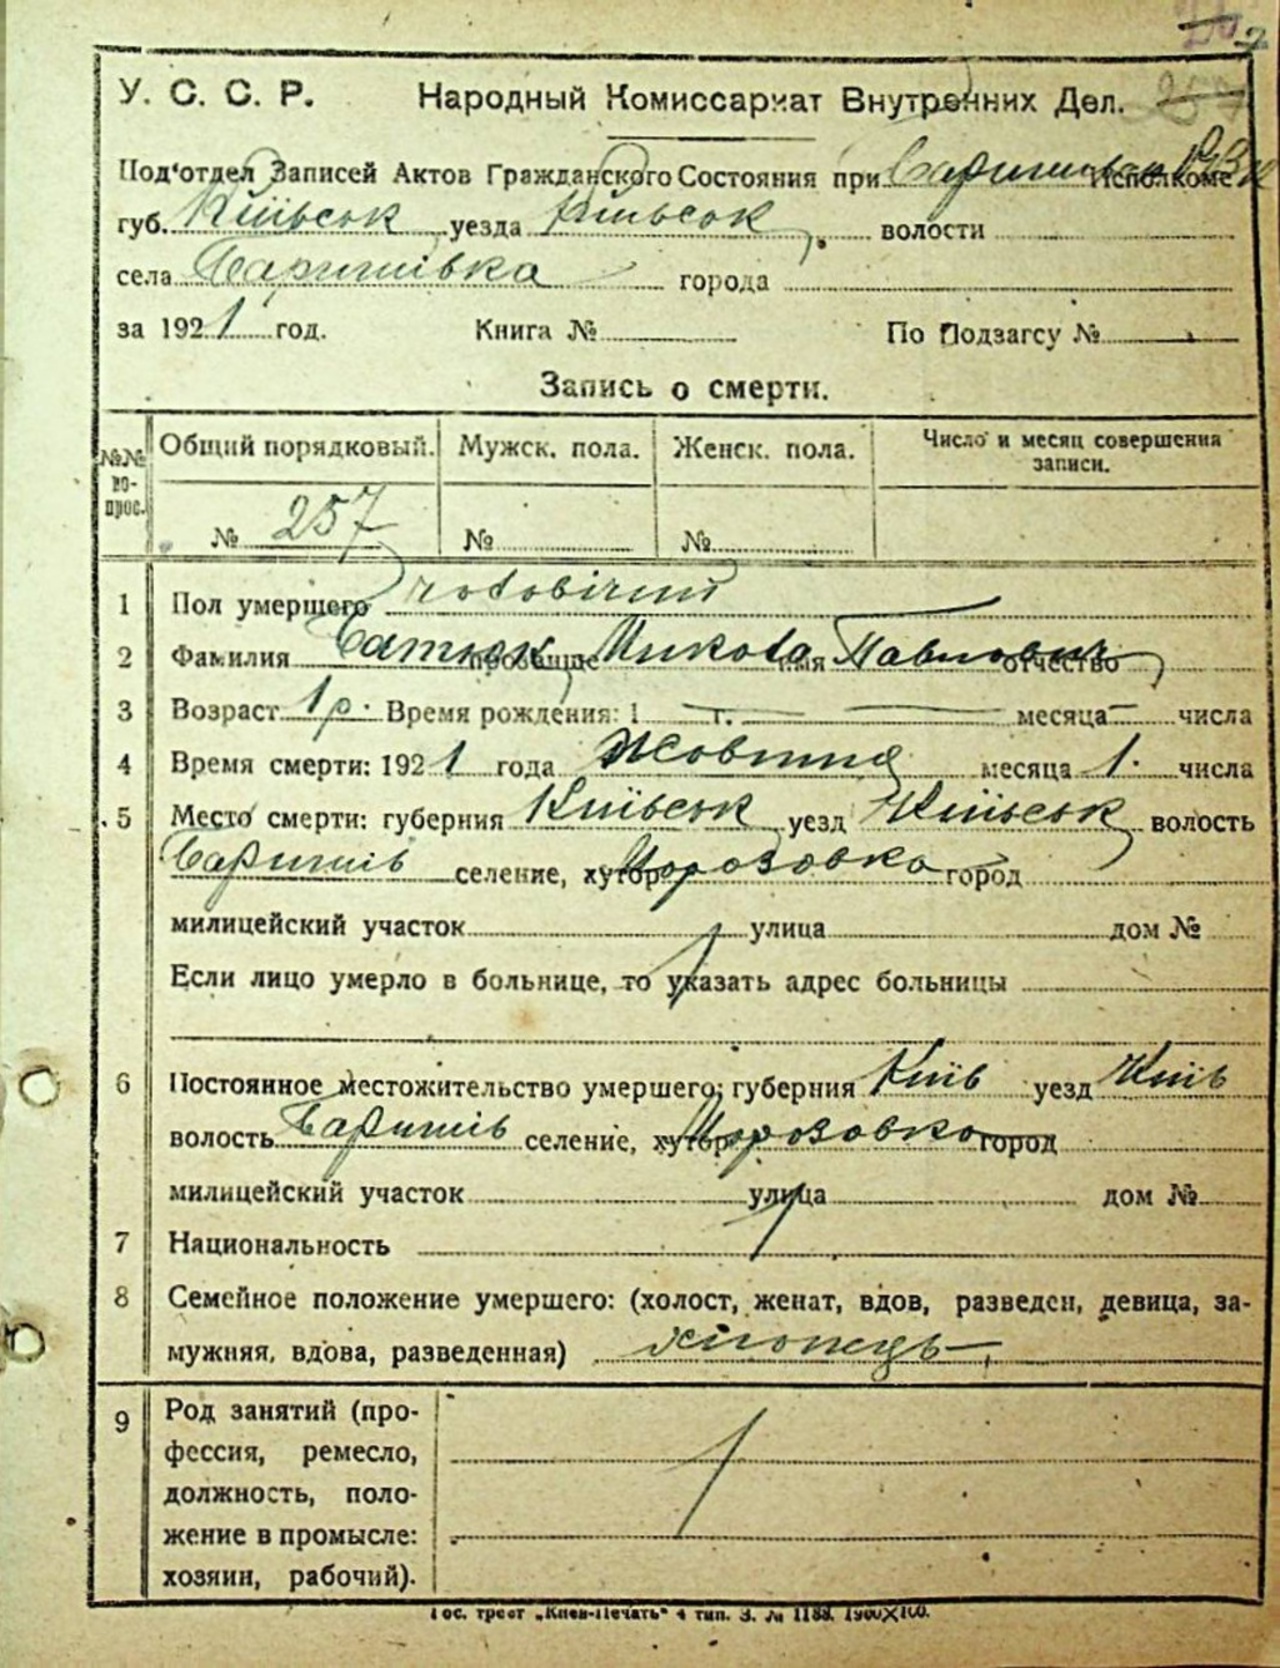 У. С. С. Р. Народный Комиссариат Внутренних Дел.
Под'отдел Записей Актов Гражданского Состояния при Исполкоме
губ. Київськ уезда Київськ волости
села Баришівка города
за 1921 год. Книга № По Подзагсу №
Запись о смерти.
№№ во-прос. Общий порядковый. Мужск. пола. Женск. пола. Число и месяц совершения записи.
№ 257 № №
1 Пол умершего чоловічий
2 Фамилия Батюк прозвище Микола имя Павлович отчество
3 Возраст 1 р. Время рождения: 1 — г. — — месяца — числа
4 Время смерти: 1921 года Жовтня месяца 1. числа
5 Место смерти: губерния Київськ уезд Київськ волость
Баришів селение, хутор Морозовка город
милицейский участок улица дом №
Если лицо умерло в больнице, то указать адрес больницы
6 Постоянное местожительство умершего; губерния Київ уезд Київ
волость Баришів селение, хутор Морозовка город
милицейский участок улица дом №
7 Национальность
8 Семейное положение умершего: (холост, женат, вдов, разведен, девица, за-
мужняя, вдова, разведенная) хлопець
9 Род занятий (про-
фессия, ремесло,
должность, поло-
жение в промысле:
хозяин, рабочий).
Гос. трест „Киев-Печать" 4 тип. З. № 1188. 1900×100.